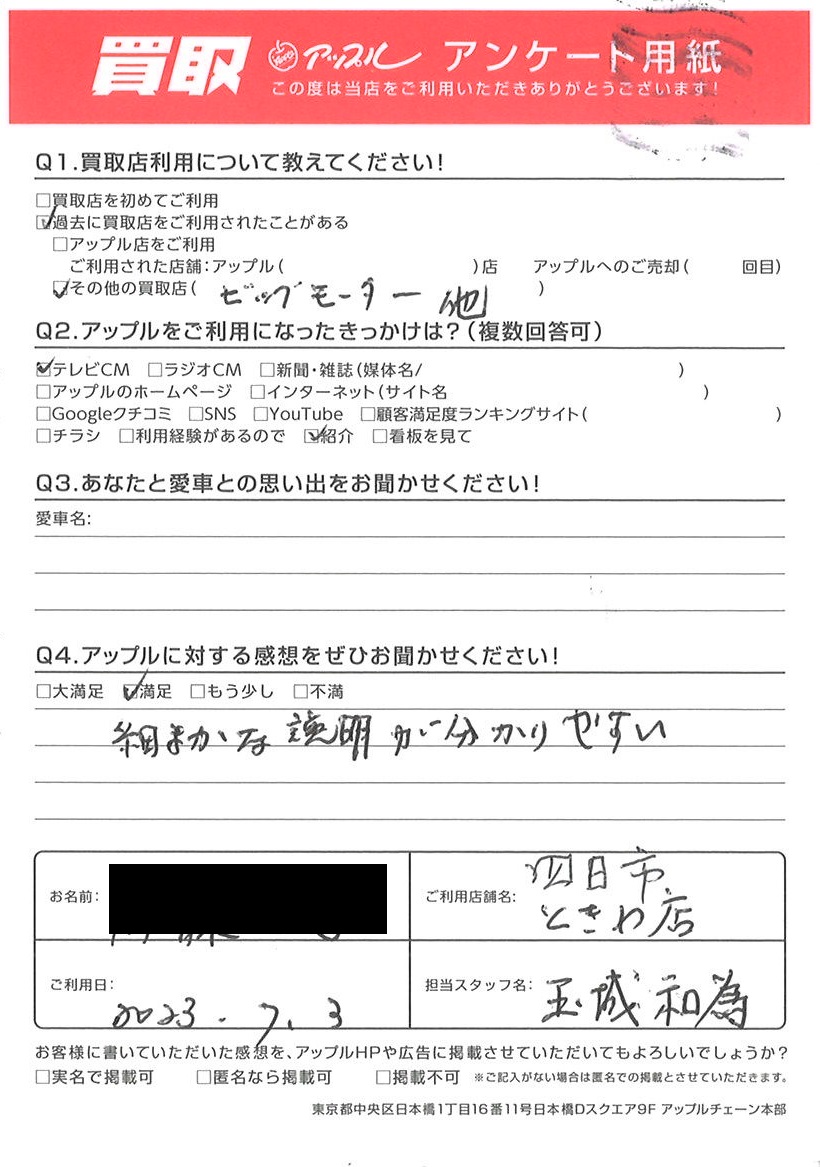 買取 アップル アンケート用紙
この度は当店をご利用いただきありがとうございます!
Q1.買取店利用について教えてください!
□買取店を初めてご利用
☑過去に買取店をご利用されたことがある
□アップル店をご利用
ご利用された店舗:アップル( )店 アップルへのご売却( 回目)
☑その他の買取店( ビッグモーター 他 )
Q2.アップルをご利用になったきっかけは?(複数回答可)
☑テレビCM □ラジオCM □新聞・雑誌(媒体名/ )
□アップルのホームページ □インターネット(サイト名 )
□Googleクチコミ □SNS □YouTube □顧客満足度ランキングサイト( )
□チラシ □利用経験があるので ☑紹介 □看板を見て
Q3.あなたと愛車との思い出をお聞かせください!
愛車名:
Q4.アップルに対する感想をぜひお聞かせください!
□大満足 ☑満足 □もう少し □不満
細まかな説明が分かりやすい
お名前:
ご利用店舗名: 四日市
ときわ店
ご利用日: 2023.7.3
担当スタッフ名: 玉城和為
お客様に書いていただいた感想を、アップルHPや広告に掲載させていただいてもよろしいでしょうか?
□実名で掲載可 □匿名なら掲載可 □掲載不可 ※ご記入がない場合は匿名での掲載とさせていただきます。
東京都中央区日本橋1丁目16番11号日本橋Dスクエア9F アップルチェーン本部